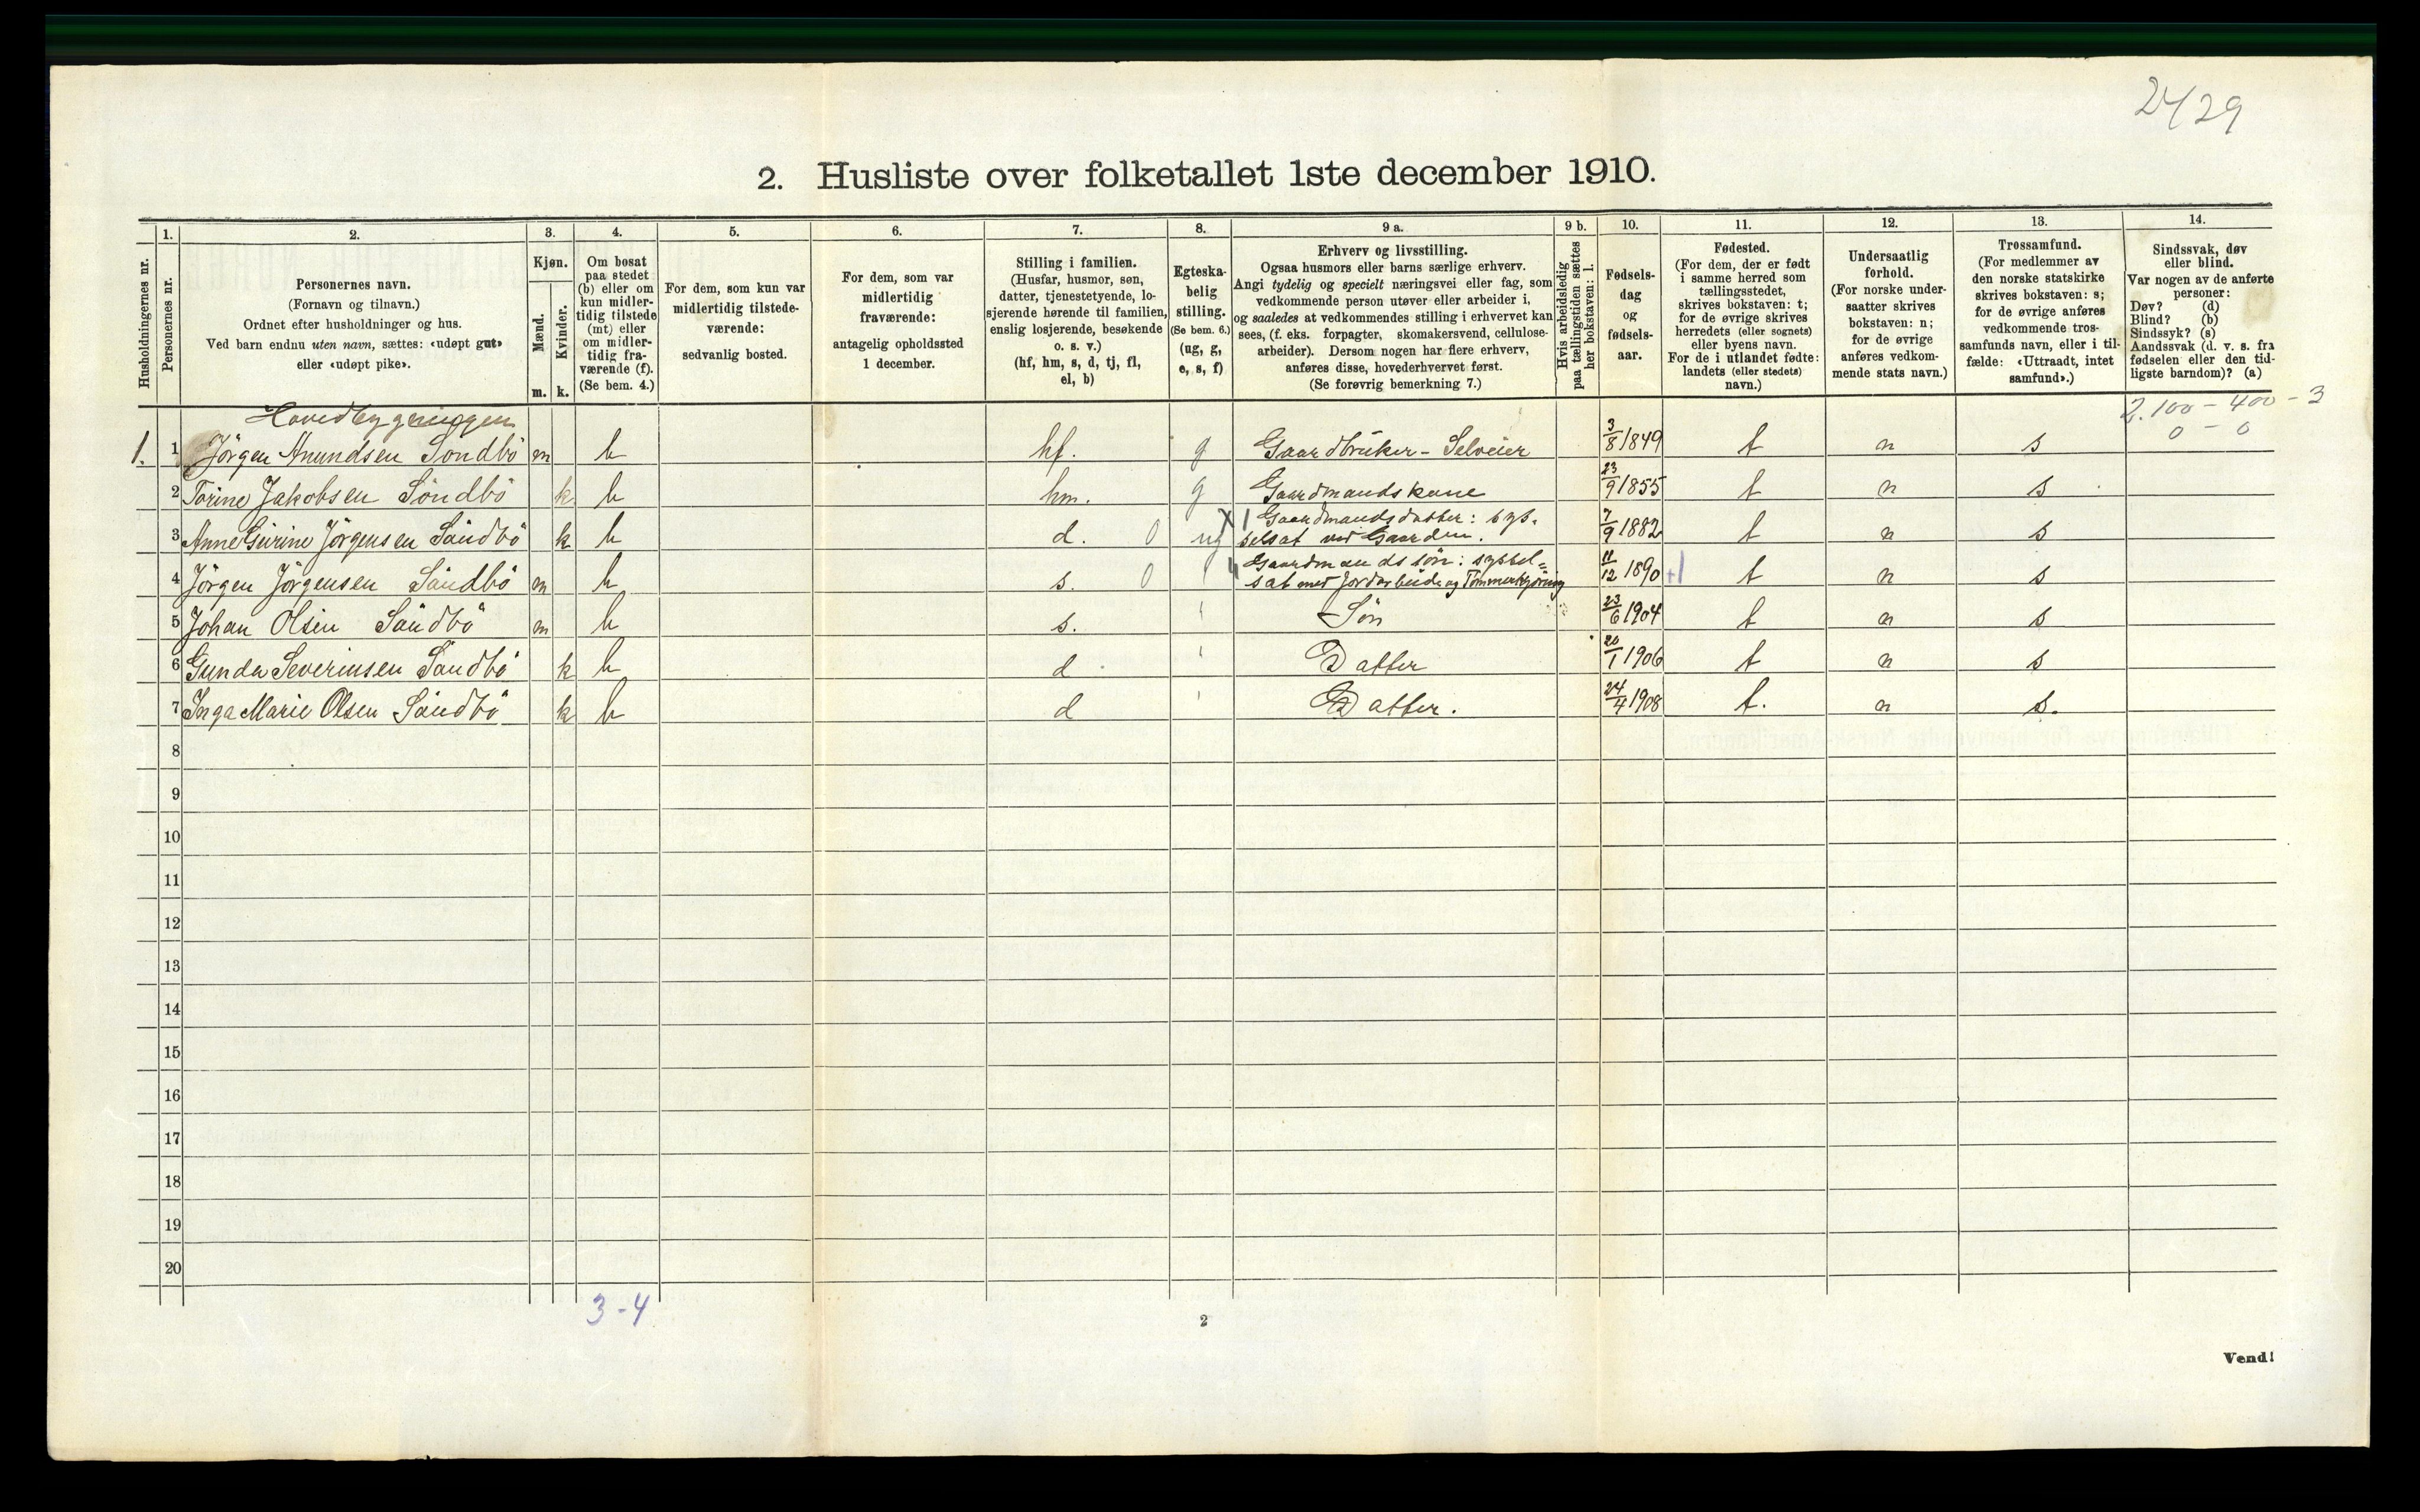 2429
2. Husliste over folketallet 1ste december 1910.
Husholdningernes nr.
1.
Personernes nr.
2.
Personernes navn.
(Fornavn og tilnavn.)
Ordnet efter husholdninger og hus.
Ved barn endnu uten navn, sættes: «udøpt gut»
eller «udøpt pike».
3.
Kjøn.
Mænd.
Kvinder.
m. k.
4.
Om bosat
paa stedet
(b) eller om
kun midler-
tidig tilstede
(mt) eller
om midler-
tidig fra-
værende (f).
(Se bem. 4.)
5.
For dem, som kun var
midlertidig tilstede-
værende:
sedvanlig bosted.
6.
For dem, som var
midlertidig
fraværende:
antagelig opholdssted
1 december.
7.
Stilling i familien.
(Husfar, husmor, søn,
datter, tjenestetyende, lo-
sjerende hørende til familien,
enslig losjerende, besøkende
o. s. v.)
(hf, hm, s, d, tj, fl,
el, b)
8.
Egteska-
belig
stilling.
(Se bem. 6.)
(ug, g,
e, s, f)
9 a.
Erhverv og livsstilling.
Ogsaa husmors eller barns særlige erhverv.
Angi tydelig og specielt næringsvei eller fag, som
vedkommende person utøver eller arbeider i,
og saaledes at vedkommendes stilling i erhvervet kan
sees, (f. eks. forpagter, skomakersvend, cellulose-
arbeider). Dersom nogen har flere erhverv,
anføres disse, hovederhvervet først.
(Se forøvrig bemerkning 7.)
9 b.
Hvis arbeidsledig
paa tællingstiden sættes
her bokstaven: l.
10.
Fødsels-
dag
og
fødsels-
aar.
11.
Fødested.
(For dem, der er født
i samme herred som
tællingsstedet,
skrives bokstaven: t;
for de øvrige skrives
herredets (eller sognets)
eller byens navn.
For de i utlandet fødte:
landets (eller stedets)
navn.)
12.
Undersaatlig
forhold.
(For norske under-
saatter skrives
bokstaven: n;
for de øvrige
anføres vedkom-
mende stats navn.)
13.
Trossamfund.
(For medlemmer av
den norske statskirke
skrives bokstaven: s;
for de øvrige anføres
vedkommende tros-
samfunds navn, eller i til-
fælde: «Uttraadt, intet
samfund».)
14.
Sindssvak, døv
eller blind.
Var nogen av de anførte
personer:
Døv? (d)
Blind? (b)
Sindssyk? (s)
Aandssvak (d. v. s. fra
fødselen eller den tid-
ligste barndom)? (a)
2.100 - 400 - 3
0 - 0
Hovedbygningen
1. 1 Jörgen Anundsen Sondbö m b hf. g Gaardbruker - Selveier 3/8 1849 t n s
2 Torine Jakobsen Söndbö k b hm. g Gaardmandskone 23/9 1855 t n s
3 Anne Gurine Jörgensen Sandbö k b d. 0 ug Gaardmandsdatter: sys-
selsat ved Gaarden. 7/9 1882 t n s
4 Jörgen Jörgensen Sandbö m b s. 0 Gaardmands sön: syssel=
sat med Jordarbeide og Tömmerkjöring 11/12 1890 +1 t n s
5 Johan Olsen Sandbö m b s. Sön 23/6 1904 t n s
6 Gunda Severinsen Sandbö k b d Datter 20/1 1906 t n s
7 Inga Marie Olsen Sandbö k b d Datter. 24/4 1908 t. n s.
8
9
10
11
12
13
14
15
16
17
18
19
20
3-4
2
Vend!